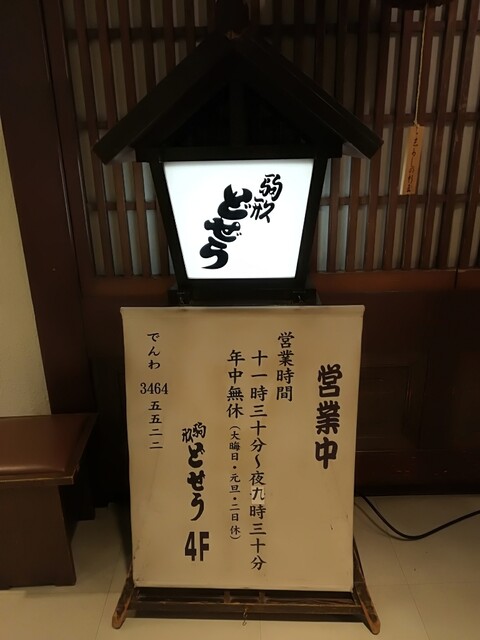 駒形
どぜう
営業中
営業時間
十一時三十分～夜九時三十分
年中無休(大晦日・元旦・二日休)
駒形どぜう 4F
でんわ 3464 五五二二